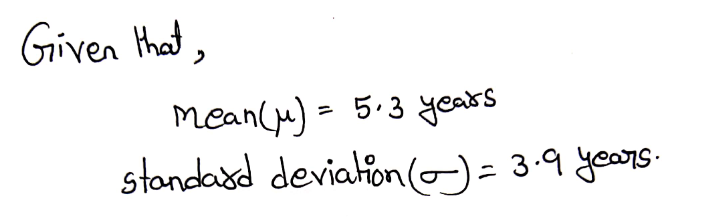 Given that,
mean(μ) = 5.3 years
standard deviation(σ) = 3.9 years.